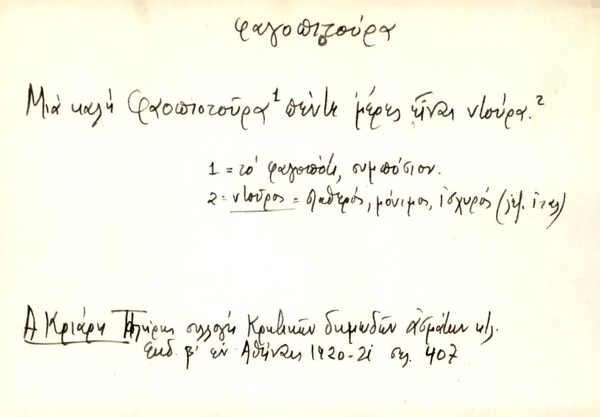 φαγοπιτούρα
Μιὰ καλὴ Φαοπιοτοῦρα¹ πέντε μέρες εἶναι ντούρα.²
1 = τὸ φαγοπότι, συμπόσιον.
2 = ντοῦρος = σταθερός, μόνιμος, ἰσχυρός (λέξ. ἰταλ)
Α Κριάρη Πλήρης συλλογὴ Κρητικῶν δημωδῶν ἀσμάτων κτλ.
Ἐκδ. β' ἐν Ἀθήναις 1920-21 σελ. 407